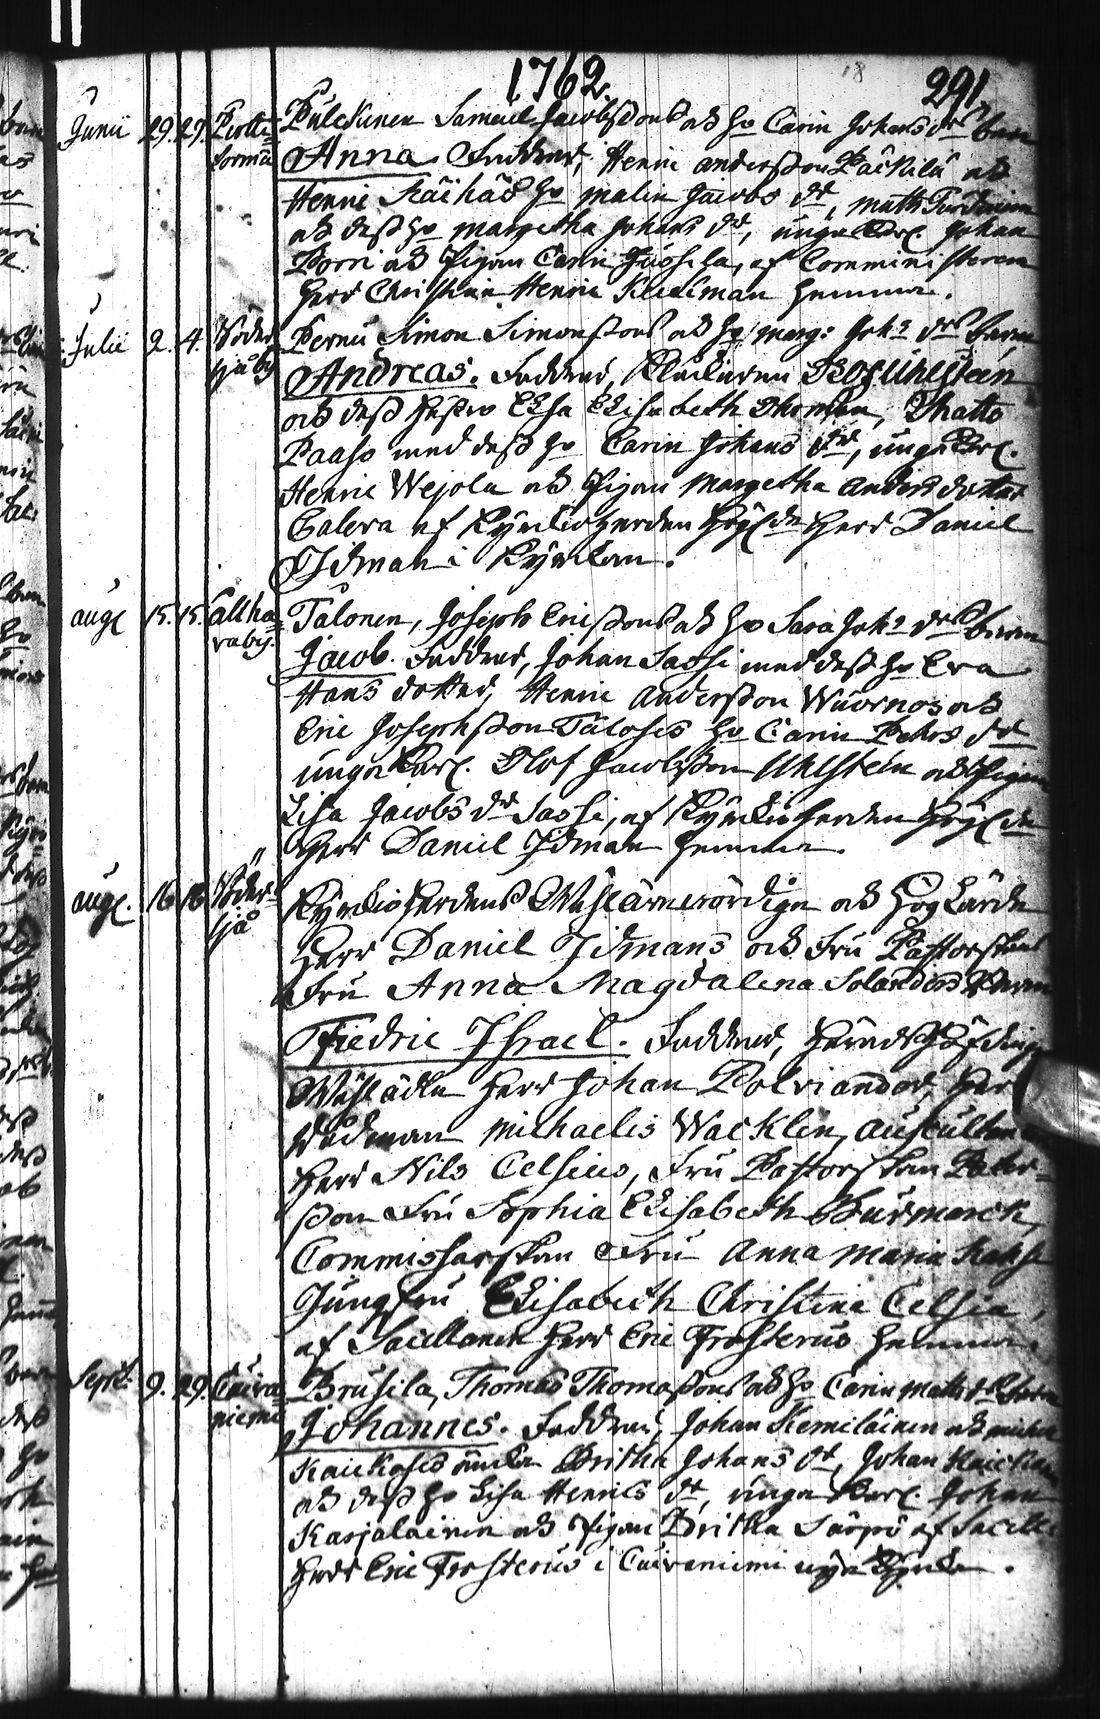 1762. 18 291
Junii 29. 29. Pulckinen Samuel Jacobssons och h. Carin Johans dr barn
Anna. Faddrar, Henric Andersson Päckilä och
Henric Räihäs h. Malin Jacobs dr, Matts
och dess h. Margetha Johans dr, unga Karl. Johan
Porri och Pigan Carin Jussila, af Comministeren
Herr Christian Henric Keckman hemma.
Julii 2. 4. Pernu Simon Simonssons och h. Marg: Joh: drs barn
Andreas. Faddrar, Klåckaren BogUhlstein
och dess hustru Elsa Elisabeth Thoman, Matts
Paaso med dess h. Carin Johans dr, unga Karl.
Henric Wejola och Pigan Margetha Anders dotter
Calera af Kyrckioherden Höglde Herr Daniel
Idman i Kyrckan.
Aug. 15. 15. Alttaraby. Talonen, Joseph Ericssons och h. Sara Joh: drs barn
Jacob. Faddrar, Johan Sassi med dess h. Eva
Hans dotter, Henric Andersson Wuornos och
Eric Josephsson Taloses h. Carin Pehrs dr
unga Karl. Olof Jacobsson Uhlstein och Pigan
Lisa Jacobs dr Sassi, af Kyrckioherden Höglde
Herr Daniel Idman hemma.
Aug. 16 16 Kyrckioherdens Wällärevördige och Höglärde
Herr Daniel Idmans och Fru Pastorskans
Fru Anna Magdalena Solanders Barn
Fredric Israel. Faddrar, Häradshöfding
Wälädla Herr Johan Polviander, Herr
Rådman Michaelis Wacklin, Auscultanten
Herr Nils Celsius, Fru Pastorskan Peter-
sson Fru Sophia Elisabeth Burmarck,
Commissarskan Fru Anna Maria
Jungfru Elisabeth Christina Celsia,
af Sacellanen Herr Eric Frosterus hemma.
Sept: 9. 29. Cuivaniemi Brusila, Thomas Thomassons och h. Carin Matts dr barn
Johannes. Faddrar, Johan Kemiläinen och
Kaickoses änckia Britha Johans dr, Johan Kaickoin
och dess h. Lisa Henrics dr, unga Karl. Johan
Karjalainen och Pigan Britha Särpi af Sacell.
Herr Eric Frosterus i Cuivaniemi nya Kyrcka.